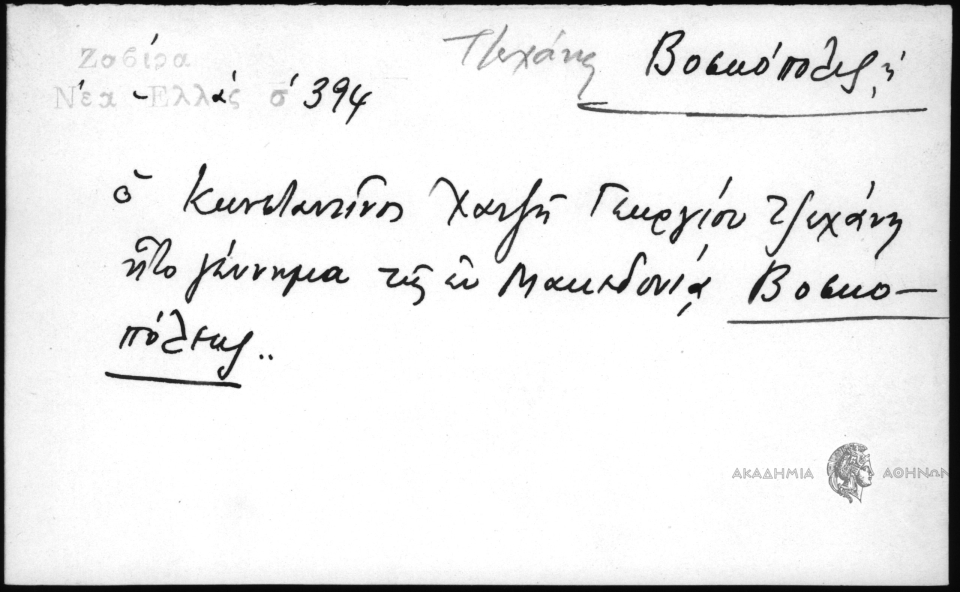 Ζαβίρα
Νέα Ἑλλάς σ' 394
Τζεχάνη
Βοσκόπολις, ἡ
ὁ Κωνσταντῖνος Χατζῆ Γεωργίου Τζεχάνη
ἦτο γέννημα τῆς ἐν Μακεδονίᾳ Βοσκο-
πόλεως..
ΑΚΑΔΗΜΙΑ ΑΘΗΝΩΝ